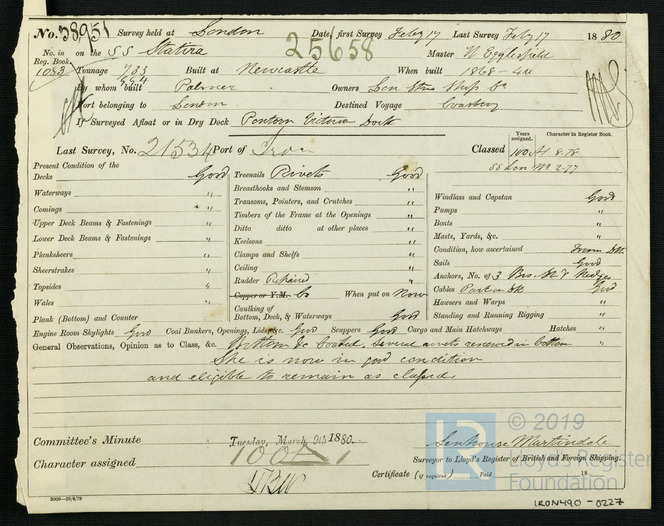 No. 38951 Survey held at London Date, first Survey Feby 17 Last Survey Feby 17 1880
No. in Reg. Book. on the SS Statira 25658 Master
1083 Tonnage 733 Built at Newcastle When built 1868
By whom built Palmer Owners Ship Co
Port belonging to London Destined Voyage
If Surveyed Afloat or in Dry Dock Pontoon Victoria Dock
Last Survey, No. 21534 Port of Iron Classed
Years assigned. Character in Register Book.
100A1 8.78
SS Lon No 2-77
Present Condition of the
Decks Good
Waterways "
Comings "
Upper Deck Beams & Fastenings "
Lower Deck Beams & Fastenings "
Planksheers "
Sheerstrakes "
Topsides "
Wales "
Plank (Bottom) and Counter "
Treenails Rivets Good
Breasthooks and Stemson "
Transoms, Pointers, and Crutches "
Timbers of the Frame at the Openings "
Ditto ditto at other places "
Keelsons "
Clamps and Shelfs "
Ceiling "
Rudder Repaired "
Copper or Y.M. When put on Now
Caulking of
Bottom, Deck, & Waterways Good
Windlass and Capstan Good
Pumps "
Boats "
Masts, Yards, &c. "
Condition, how ascertained From Dk
Sails Good
Anchors, No. of 3
Cables Good
Hawsers and Warps "
Standing and Running Rigging "
Engine Room Skylights Good Coal Bunkers, Openings, Lids &c. Good Scuppers Good Cargo and Main Hatchways Hatches "
General Observations, Opinion as to Class, &c. Bottom &c Coated, several rivets renewed in bottom
She is now in good condition
and eligible to remain as classed.
Committee's Minute Tuesday, March 9th 1880.
Character assigned 100A1
Senhouse Martindale
Surveyor to Lloyd's Register of British and Foreign Shipping.
Certificate (if required) Paid 18
5000—29/6/78
© 2019
LR
Lloyd's Register
Foundation
IRON490-0227